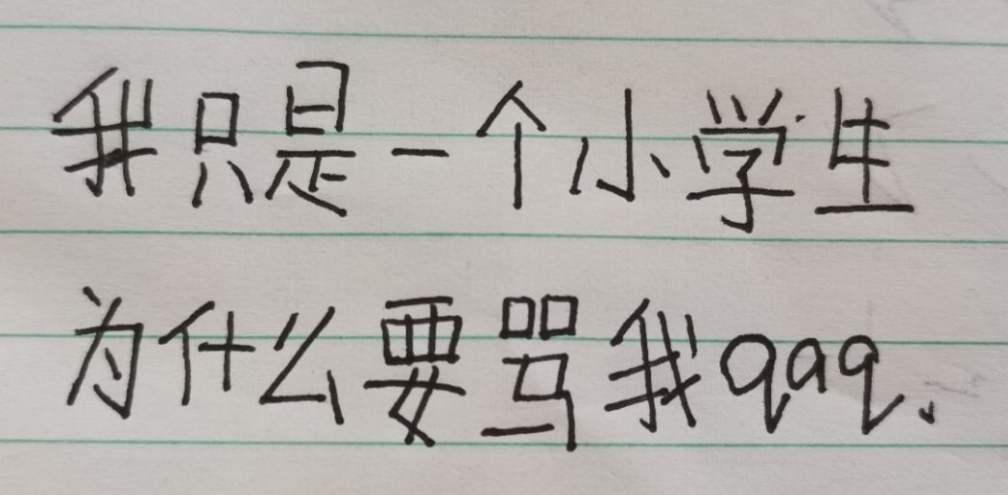 我只是一个小学生
为什么要骂我qaq.